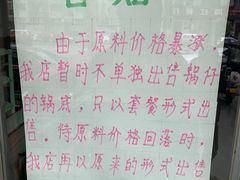 由于原料价格暴涨，
我店暂时不单独出售锅仔
的锅底，只以套餐形式出
售。待原料价格回落时，
我店再以原来的形式出售